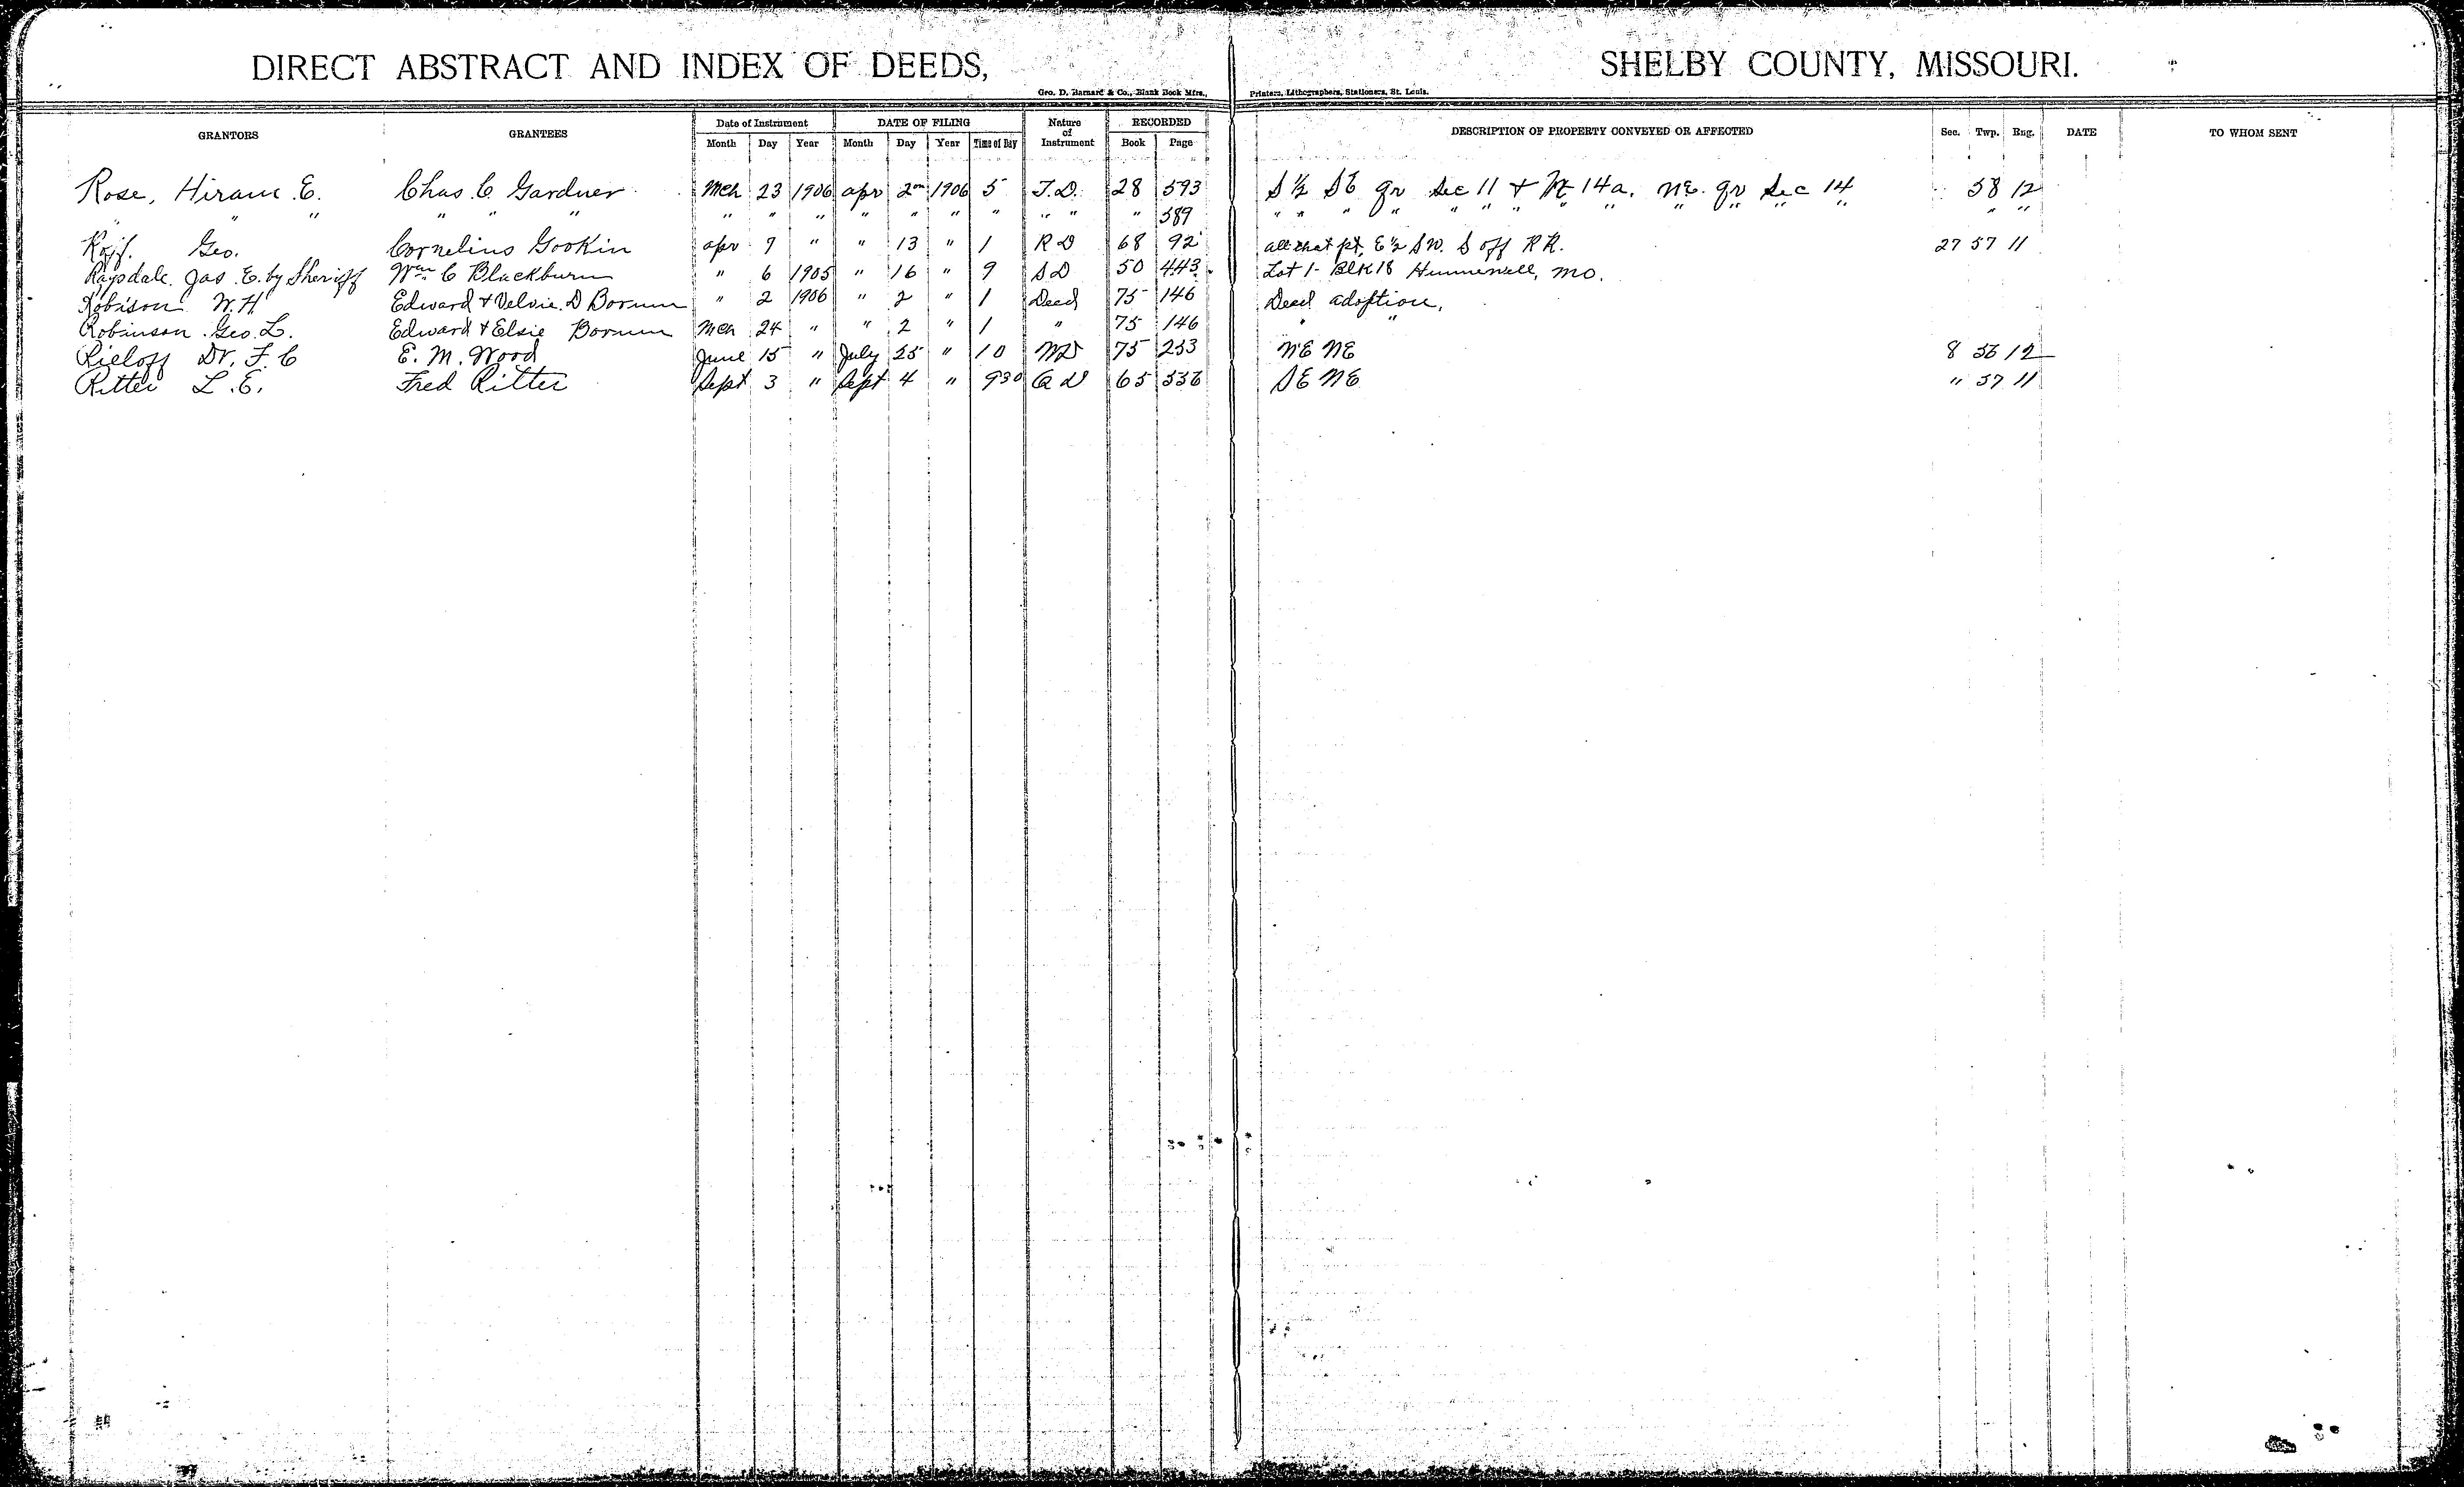 DIRECT ABSTRACT AND INDEX OF DEEDS, SHELBY COUNTY, MISSOURI.
Geo. D. Barnard & Co., Blank Book Mfrs., Printers, Lithographers, Stationers, St. Louis.
GRANTORS GRANTEES Date of Instrument DATE OF FILING Nature of Instrument RECORDED DESCRIPTION OF PROPERTY CONVEYED OR AFFECTED Sec. Twp. Rng. DATE TO WHOM SENT
Month Day Year Month Day Year Time of Day Book Page
Rose, Hiram E. Chas. C Gardner Mch 23 1906 apr 2 1906 5 T.D. 28 593 S 1/2 SE qr Sec 11 & 14a. NE. qr Sec 14 58 12
" " " " " " " " " " " " " " " 589 " " " " " " " " " " " " " " "
Geo. Cornelius Gookin apr 7 " " 13 " 1 R D 68 92 all that pt. E 1/2 SW. S off R R. 27 57 11
Ragsdale. Jas. E. by Sheriff Wm C Blackburn " 6 1905 " 16 " 9 S D 50 443 Lot 1- Blk 18 Hunnewell, Mo.
Robison W. H. Edward & Velvie. D Borum " 2 1906 " 2 " 1 Deed 75 146 Deed adoption.
Robinson Geo. L. Edward & Elsie Borum Mch 24 " " 2 " 1 " 75 146 " "
Rieloff Dr. F. C E. M. Wood June 15 " July 25 " 10 W D 75 253 NE NE 8 56 12
Ritter L. E. Fred Ritter Sept 3 " Sept 4 " 930 Q D 65 336 SE NE " 57 11